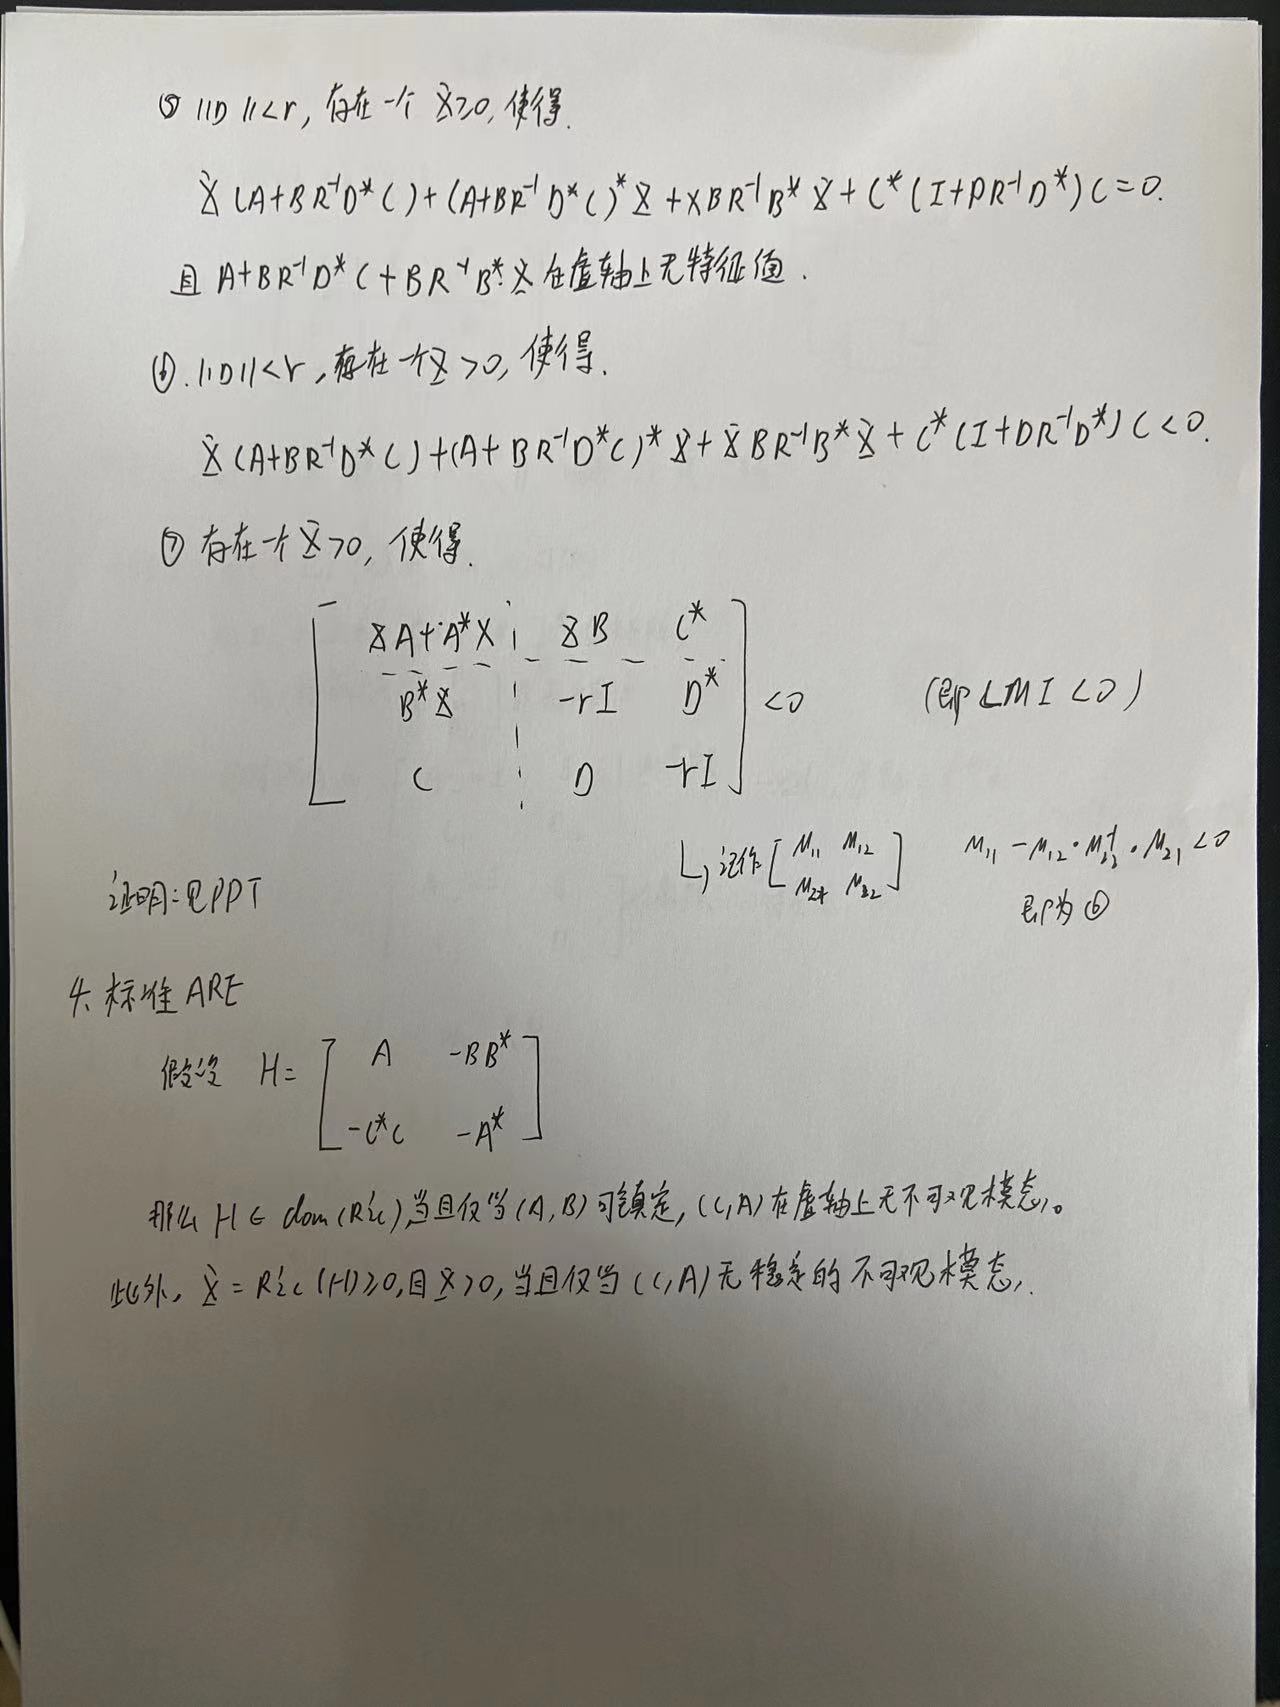 ⑤ ||D||<r, 存在一个 X≥0, 使得.
X(A+BR⁻¹D*C)+(A+BR⁻¹D*C)*X+XBR⁻¹B*X+C*(I+DR⁻¹D*)C=0.
且 A+BR⁻¹D*C+BR⁻¹B*X 在虚轴上无特征值.
⑥. ||D||<r, 存在一个X>0, 使得.
X(A+BR⁻¹D*C)+(A+BR⁻¹D*C)*X+XBR⁻¹B*X+C*(I+DR⁻¹D*)C<0.
⑦ 存在一个X>0, 使得.
XA+A*X XB C*
B*X -rI D* <0 (即LMI<0)
C D -rI
记作[M₁₁ M₁₂ M₁₁-M₁₂·M₂₂⁻¹·M₂₁<0
M₂₁ M₂₂] 即为⑥
证明:见PPT
4、标准ARE
假设 H= A -BB*
-C*C -A*
那么 H∈dom(Ric),当且仅当(A,B)可镇定, (C,A)在虚轴上无不可观模态。
此外, X=Ric(H)≥0,且X>0, 当且仅当(C,A)无稳定的不可观模态.